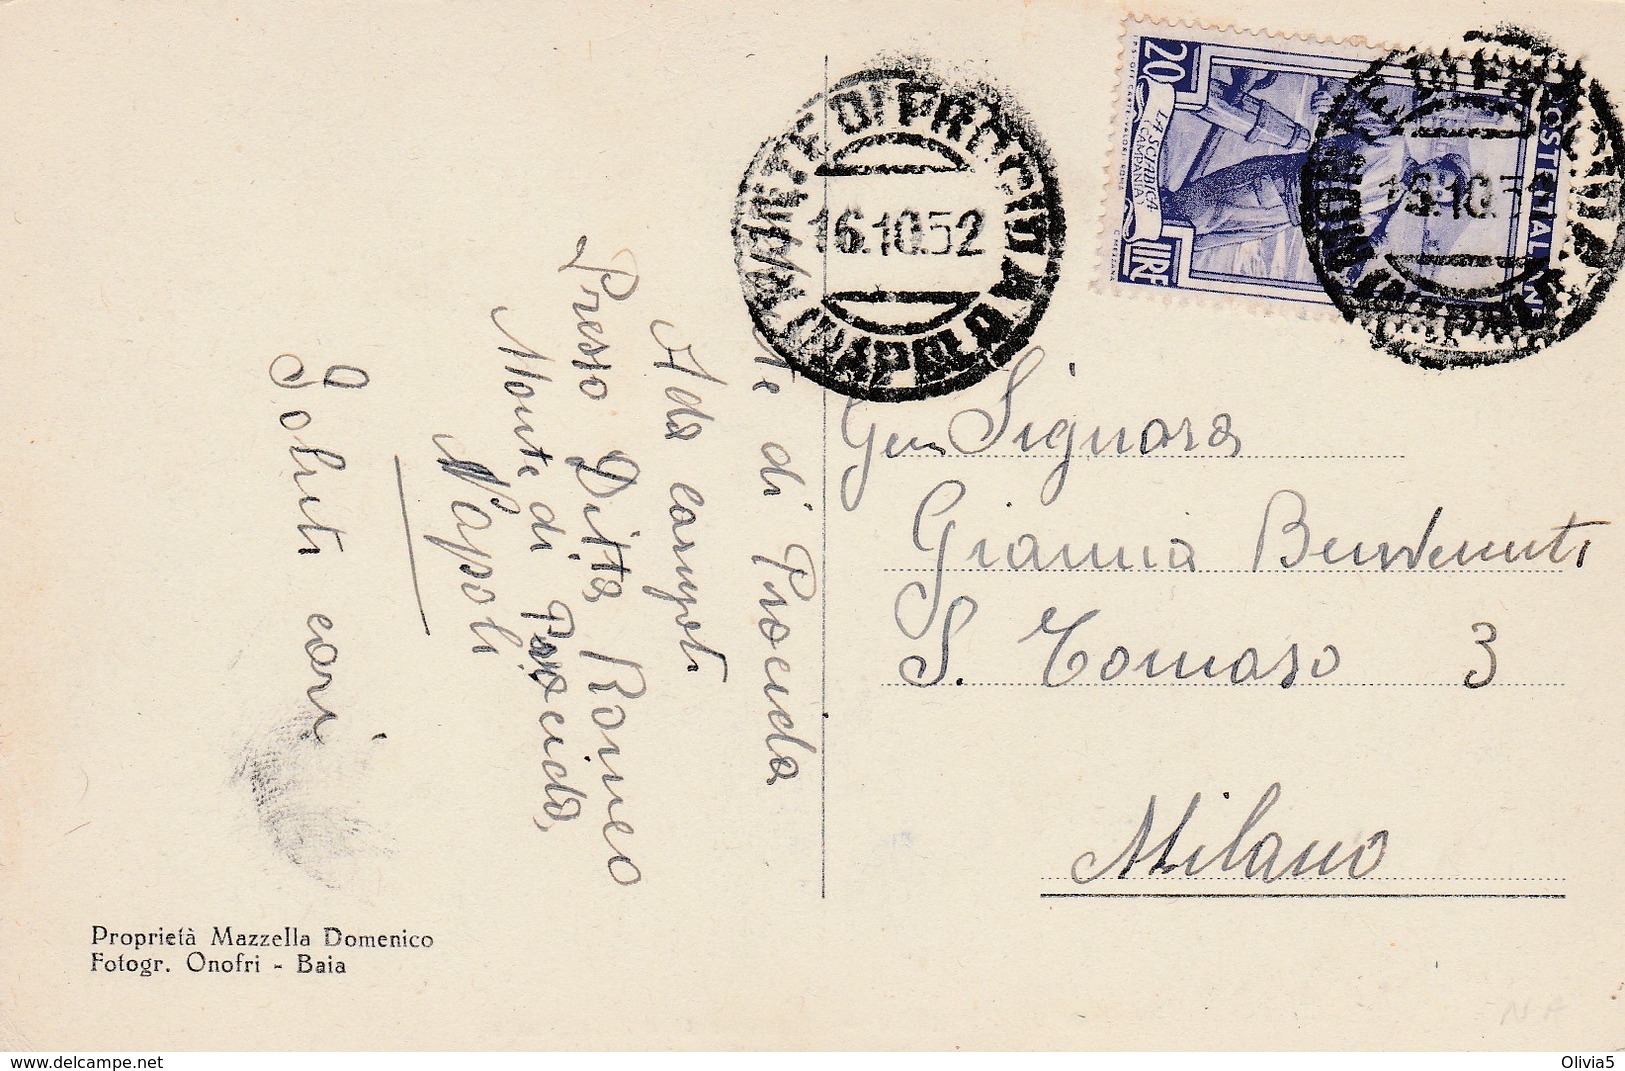 M.te di Procida
Ada Campoti
Presso Ditta Romeo
Monte di Procida,
Napoli
Saluti cari
Proprietà Mazzella Domenico
Fotogr. Onofri - Baia
MONTE DI PROCIDA
16.10.52
(NAPOLI)
20
LA SCIABICA
CAMPANIA
LIRE
POSTE ITALIANE
16.10.5
Gen Signora
Gianna Benvenuti
S. Tomaso 3
Milano
NA
www.delcampe.net
Olivia5